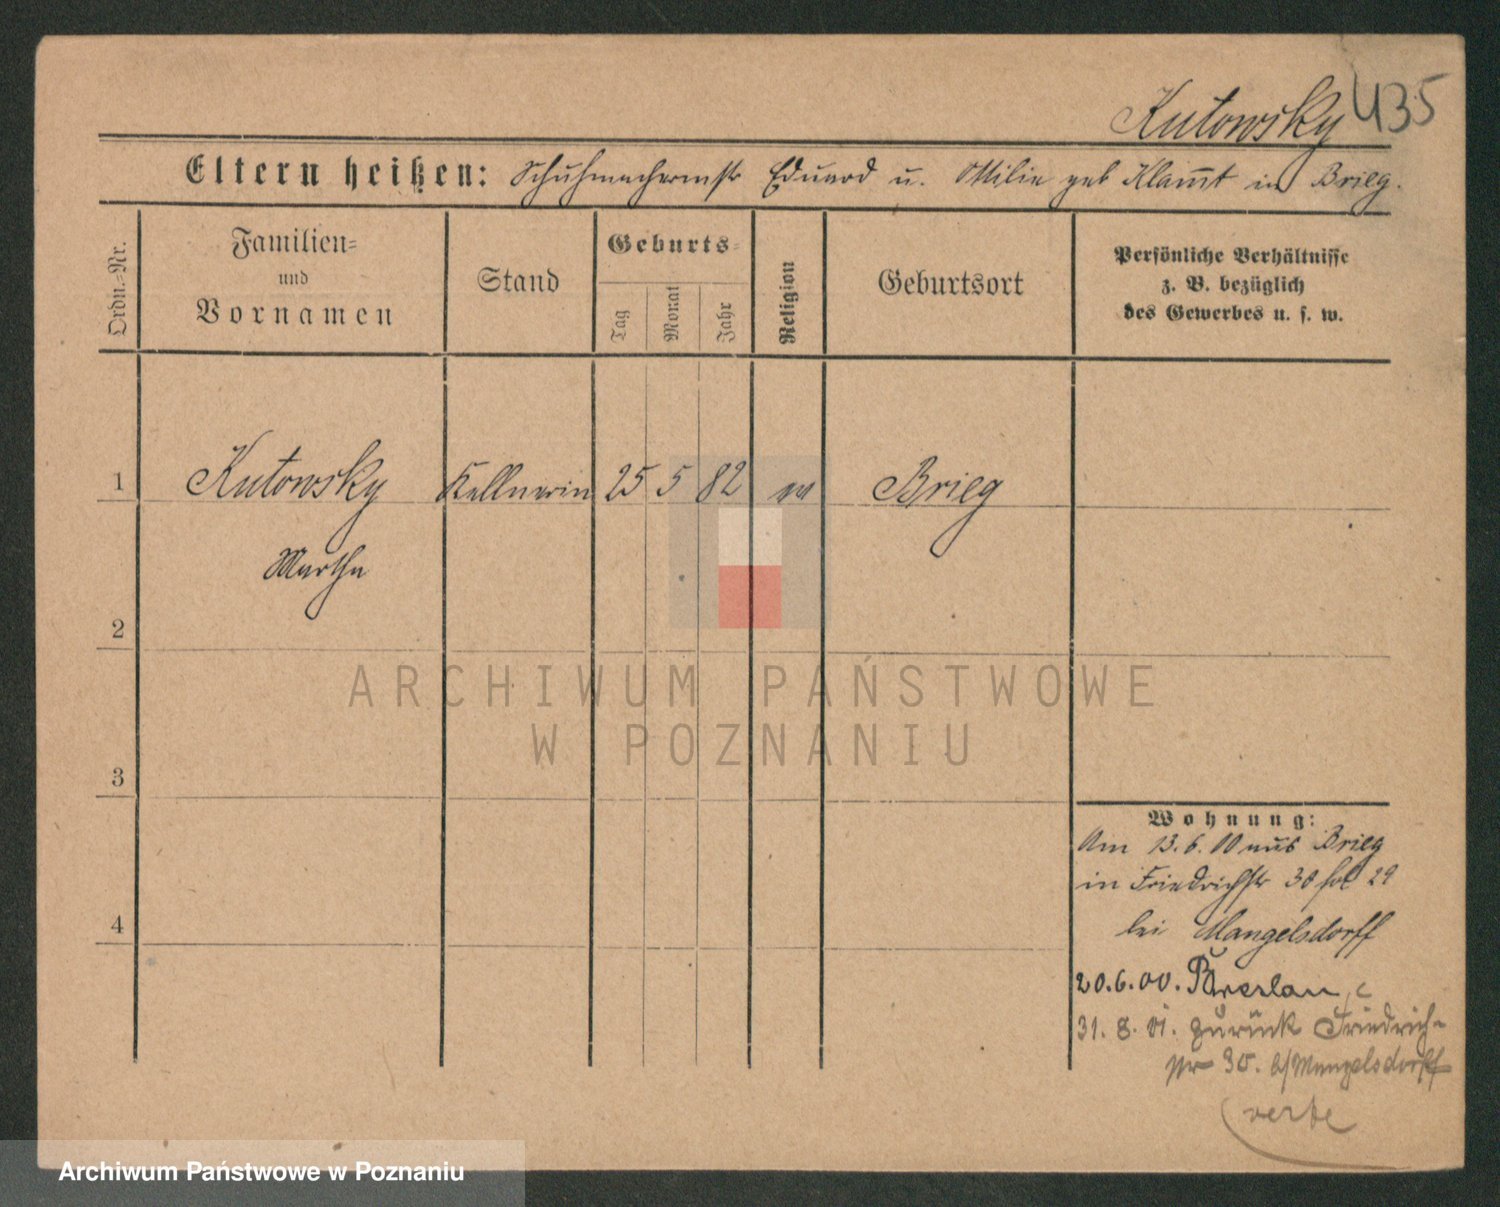 Kutowsky 435
Eltern heißen: Schuhmachermstr Eduard u. Ottilie geb Klam̅t in Brieg.
Ordn.-Nr.
Familien-
und
Vornamen
Stand
Geburts-
Tag
Monat
Jahr
Religion
Geburtsort
Persönliche Verhältnisse
z. B. bezüglich
des Gewerbes u. s. w.
1 Kutowsky Kellnerin 25 5 82 Brieg
Martha
2
3
4
Wohnung:
Am 13. 6. 00 aus Brieg
in Friedrichstr 30 29
bei Mangelsdorff
20. 6. 00. Breslau
31. 8. 01. zurück Friedrich-
30. b/Mangelsdorff
ARCHIWUM PAŃSTWOWE
W POZNANIU
Archiwum Państwowe w Poznaniu